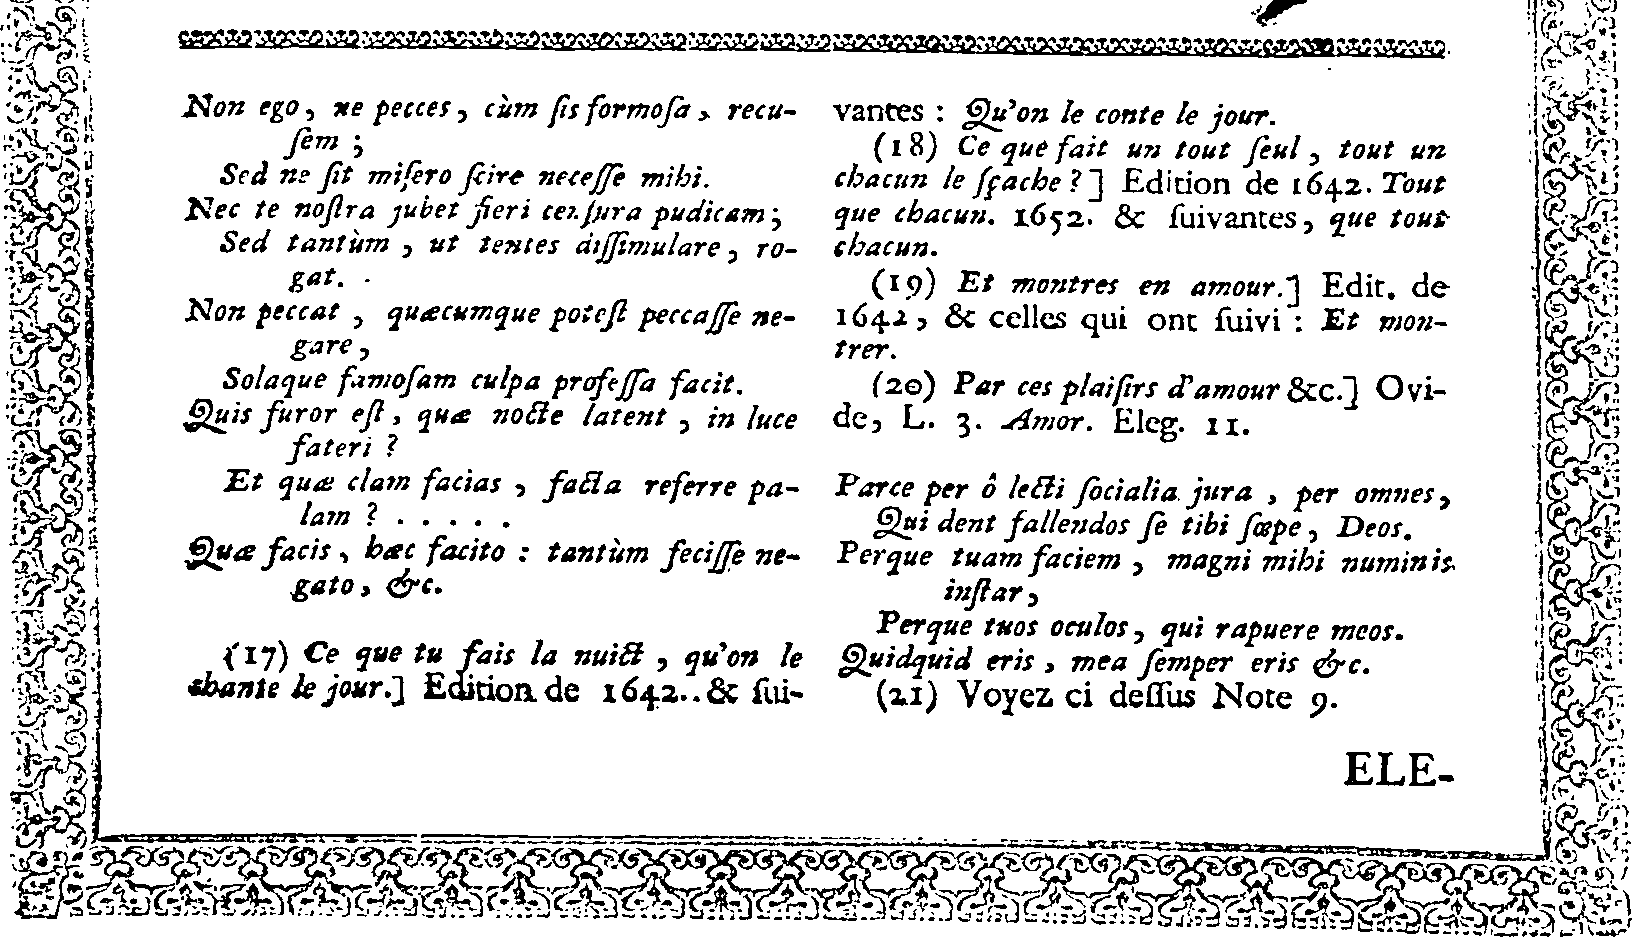 Non ego, ne pecces, cùm ſis formoſa, recu-
ſem ;
Sed ne ſit miſero ſcire neceſſe mihi.
Nec te noſtra jubet fieri cenſura pudicam ;
Sed tantùm, ut tentes diſſimulare, ro-
gat.
Non peccat, quæcumque poteſt peccaſſe ne-
gare,
Solaque famoſam culpa profeſſa facit.
Quis furor eſt, quæ nocte latent, in luce
fateri ?
Et quæ clam facias, facta referre pa-
lam ? . . . . .
Quæ facis, hæc facito : tantùm feciſſe ne-
gato, &c.
(17) Ce que tu fais la nuict, qu'on le
chante le jour.] Edition de 1642. & ſui-
vantes : Qu'on le conte le jour.
(18) Ce que fait un tout ſeul, tout un
chacun le ſçache ?] Edition de 1642. Tout
que chacun. 1652. & ſuivantes, que tout
chacun.
(19) Et montres en amour.] Edit. de
1642, & celles qui ont ſuivi : Et mon-
trer.
(20) Par ces plaiſirs d'amour &c.] Ovi-
de, L. 3. Amor. Eleg. 11.
Parce per ô lecti ſocialia jura, per omnes,
Qui dent fallendos ſe tibi ſœpe, Deos.
Perque tuam faciem, magni mihi numinis
inſtar,
Perque tuos oculos, qui rapuere meos.
Quidquid eris, mea ſemper eris &c.
(21) Voyez ci deſſus Note 9.
ELE-